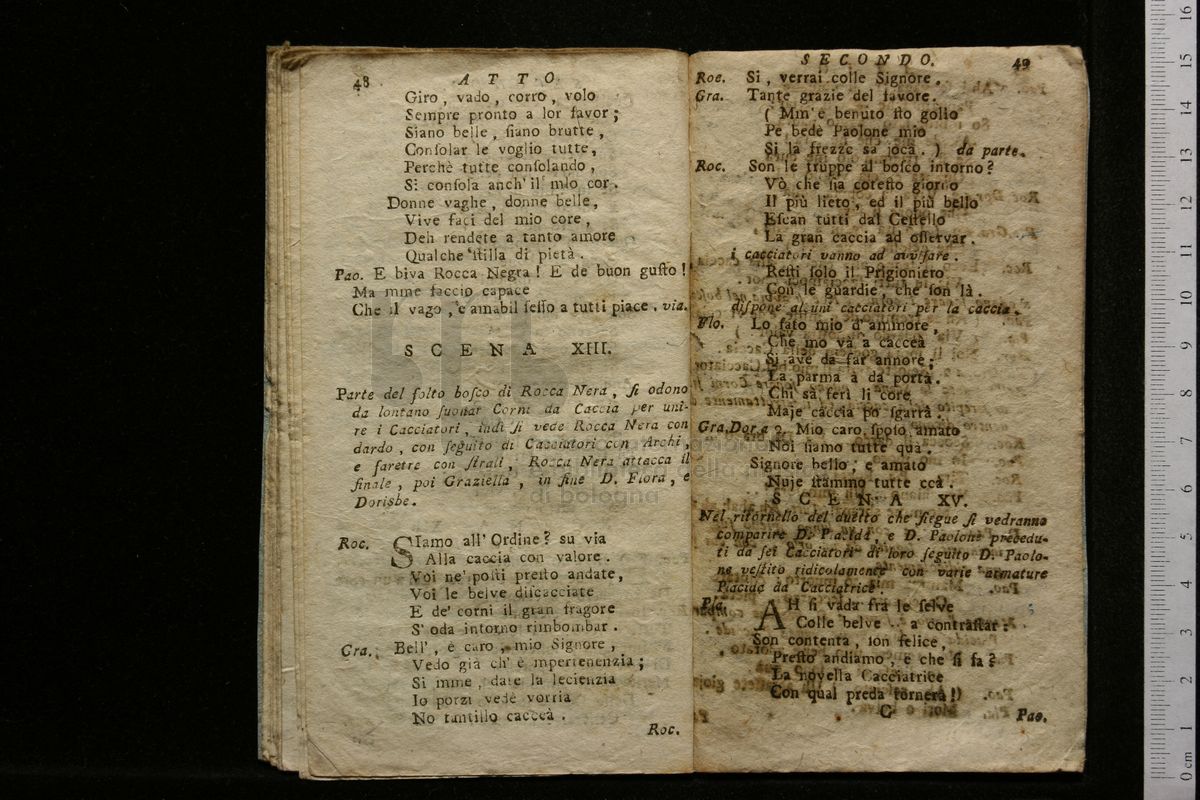 48 ATTO
Giro, vado, corro, volo
Sempre pronto a lor favor;
Siano belle, ſiano brutte,
Conſolar le voglio tutte,
Perchè tutte conſolando,
Si conſola anch' il mio cor.
Donne vaghe, donne belle,
Vive faci del mio core,
Deh rendete a tanto amore
Qualche ſtilla di pietà.
Pao. E biva Rocca Negra! E de buon guſto!
Ma mme faccio capace
Che il vago, e amabil ſeſſo a tutti piace. via.
SCENA XIII.
Parte del folto boſco di Rocca Nera, ſi odono
da lontano ſuonar Corni da Caccia per uni-
re i Cacciatori, indi ſi vede Rocca Nera con
dardo, con ſeguito di Cacciatori con Archi,
e faretre con ſtrali, Rocca Nera attacca il
finale, poi Graziella, in fine D. Flora, e
Dorisbe.
Roc. SIamo all' Ordine? su via
Alla caccia con valore.
Voi ne' poſti preſto andate,
Voi le belve diſcacciate
E de' corni il gran fragore
S' oda intorno rimbombar.
Gra. Bell', e caro, mio Signore,
Vedo già ch' è impertenenzia;
Si mme, date la lecienzia
Io porzì vedè vorria
No tantillo caccea.
Roc.
SECONDO. 49
Roc. Si, verrai colle Signore.
Gra. Tante grazie del favore.
( Mm'è benuto ſto golio
Pe bedè Paolone mio
Si la frezze sa joca. ) da parte.
Roc. Son le truppe al boſco intorno?
Vò che ſia coteſto giorno
Il più lieto, ed il più bello
Eſcan tutti dal Caſtello
La gran caccia ad oſſervar.
i cacciatori vanno ad avviſare.
Reſti ſolo il Prigioniero
Con le guardie, che ſon là.
diſpone alcuni cacciatori per la caccia.
Flo. Lo fato mio d'ammore,
Che mo và a cacceà
Si ave da far annore;
La parma à da portà.
Chi sà ferì li core
Maje caccia pò sgarrà.
Gra. Dor. a 2. Mio caro ſpoſo amato
Noi ſiamo tutte quà.
Signore bello, e amato
Nuje ſtammo tutte ccà.
SCENA XV.
Nel ritornello del duetto che ſiegue ſi vedranno
comparire D. Placida, e D. Paolone precedu-
ti da ſei Cacciatori di loro ſeguito D. Paolo-
ne veſtito ridicolamente con varie armature
Placida da Cacciatrice.
Pla. AH ſi vada frà le ſelve
Colle belve a contraſtar:
Son contenta, ſon felice,
Preſto andiamo, e che ſi fa?
La novella Cacciatrice
Con qual preda tornerà!)
C Pao.